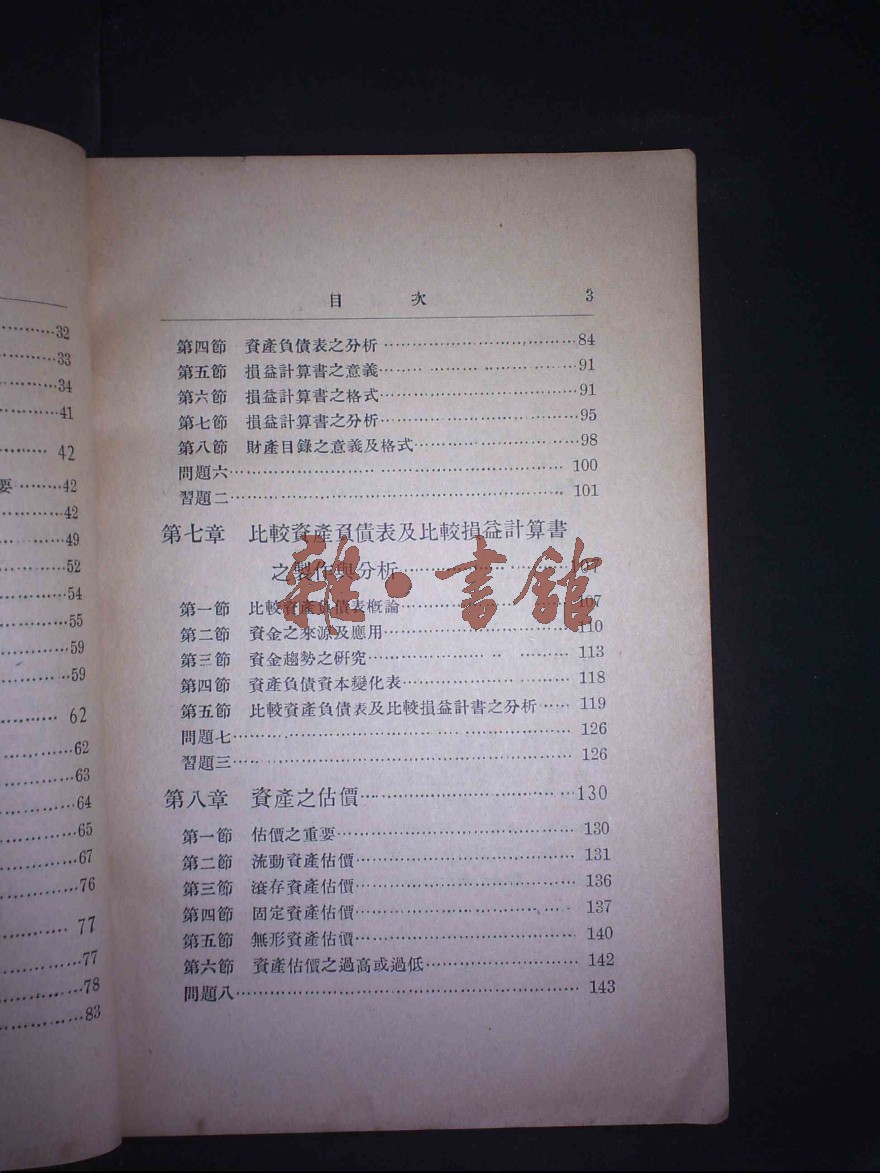 32
33
34
41
42
要 42
42
49
52
54
55
59
59
62
62
63
64
65
67
76
77
77
78
83
目 次 3
第四節 資產負債表之分析 84
第五節 損益計算書之意義 91
第六節 損益計算書之格式 91
第七節 損益計算書之分析 95
第八節 財產目錄之意義及格式 98
問題六 100
習題二 101
第七章 比較資產負債表及比較損益計算書
之製作與分析
第一節 比較資產負債表概論 107
第二節 資金之來源及應用 110
第三節 資金趨勢之研究 113
第四節 資產負債資本變化表 118
第五節 比較資產負債表及比較損益計書之分析 119
問題七 126
習題三 126
第八章 資產之估價 130
第一節 估價之重要 130
第二節 流動資產估價 131
第三節 滾存資產估價 136
第四節 固定資產估價 137
第五節 無形資產估價 140
第六節 資產估價之過高或過低 142
問題八 143
雜·書館